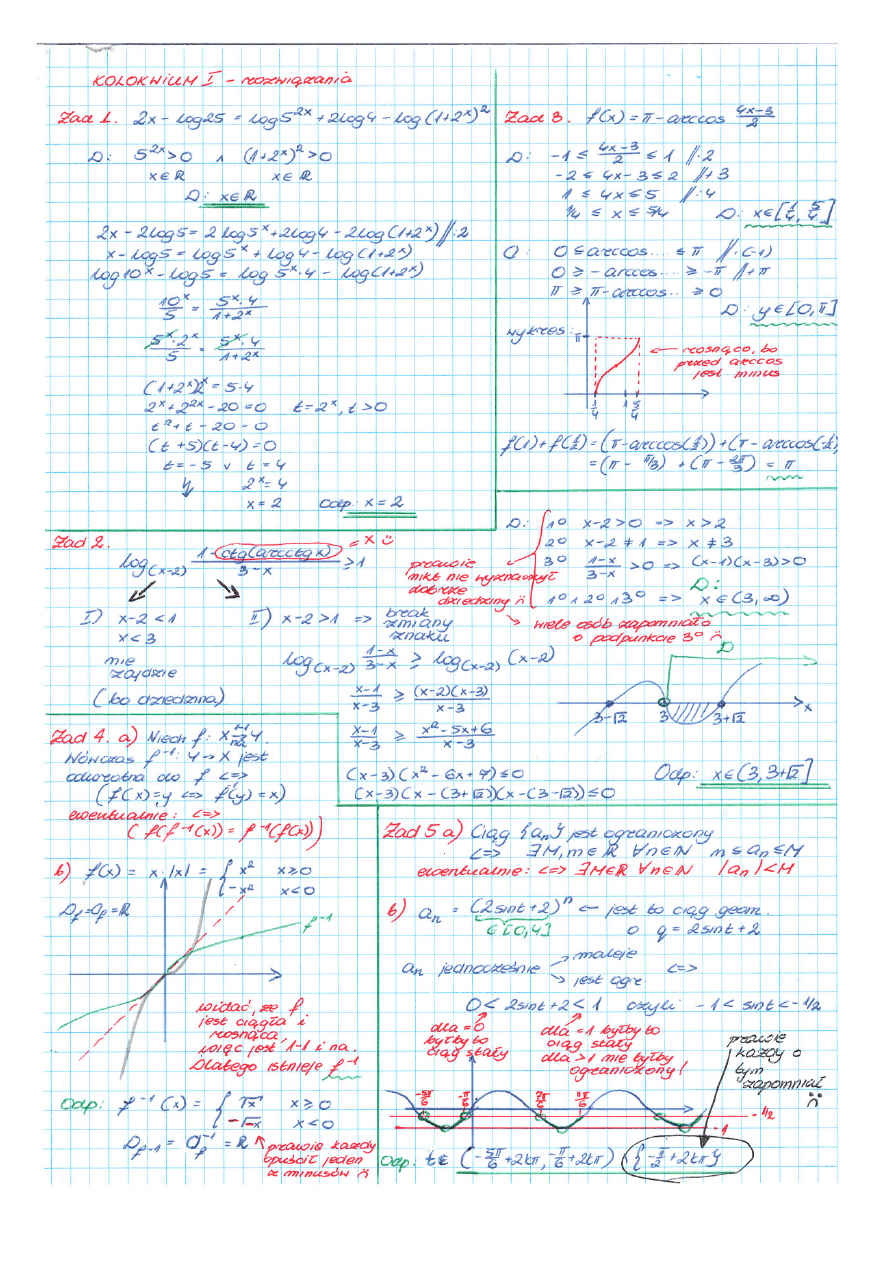 KOLOKWIUM I - rozwiązania
Zad 1. 2x - log25 = log5^{2x} + 2log4 - log(1+2^x)^2
D: 5^{2x}>0 ∧ (1+2^x)^2>0
x∈ℝ x∈ℝ
D: x∈ℝ
2x - 2log5 = 2log5^x + 2log4 - 2log(1+2^x) //:2
x - log5 = log5^x + log4 - log(1+2^x)
log10^x - log5 = log 5^x·4 - log(1+2^x)
10^x/5 = 5^x·4/(1+2^x)
5^x·2^x/5 = 5^x·4/(1+2^x)
(1+2^x)2^x = 5·4
2^x + 2^{2x} - 20 = 0 t=2^x, t>0
t²+t-20-0
(t+5)(t-4)=0
t=-5 ∨ t=4
2^x=4
x=2 Odp: x=2
Zad 3. f(x) = π - arccos (4x-3)/2
D: -1 ≤ (4x-3)/2 ≤ 1 //·2
-2 ≤ 4x-3 ≤ 2 //+3
1 ≤ 4x ≤ 5 //:4
1/4 ≤ x ≤ 5/4 D: x∈[1/4, 5/4]
O: 0 ≤ arccos.... ≤ π //·(-1)
0 ≥ -arccos.... ≥ -π //+π
π ≥ π-arccos.. ≥ 0
D: y∈[0,π]
wykres:
π
rosnąco, bo
przed arccos
jest minus
1/4 1 5/4
f(1)+f(1/2) = (π-arccos(1/2)) + (π-arccos(-1/2))
= (π - π/3) + (π - 2π/3) = π
Zad 2.
log_{(x-2)} (1-ctg(arcctg x))/(3-x) ≥ 1
= x ☺
I) x-2<1
x<3
nie
zajdzie
(bo dziedzina)
II) x-2>1 => brak
zmiany
znaku
log_{(x-2)} (1-x)/(3-x) ≥ log_{(x-2)} (x-2)
(x-1)/(x-3) ≥ (x-2)(x-3)/(x-3)
(x-1)/(x-3) ≥ (x²-5x+6)/(x-3)
(x-3)(x²-6x+7) ≤ 0
(x-3)(x-(3+√2))(x-(3-√2)) ≤ 0
D: 1° x-2>0 => x>2
2° x-2≠1 => x≠3
3° (1-x)/(3-x) > 0 => (x-1)(x-3)>0
D:
1°∧2°∧3° => x∈(3,∞)
prawie
nikt nie wyznaczył
dobrze
dziedziny ☹
wiele osób zapomniało
o podpunkcie 3° ☹
D
3-√2 3 3+√2 x
Odp: x∈(3,3+√2]
Zad 4. a) Niech f: X 1-1 na Y.
Wówczas f^{-1}: Y→X jest
odwrotna do f <=>
(f(x)=y <=> f(y)=x)
ewentualnie: <=>
(f(f^{-1}(x)) = f^{-1}(f(x)))
b) f(x) = x·|x| = { x² x≥0
-x² x<0
D_f=O_f=ℝ
f^{-1}
widać, że f
jest ciągła i
rosnąca,
więc jest 1-1 i na.
Dlatego istnieje f^{-1}
Odp: f^{-1}(x) = { √x x≥0
-√-x x<0
D_{f^{-1}} = O_f^{-1} = ℝ
prawie każdy
opuścił jeden
z minusów ☹
Zad 5 a) Ciąg {a_n} jest ograniczony
<=> ∃M,m∈ℝ ∀n∈ℕ m≤a_n≤M
ewentualnie: <=> ∃M∈ℝ ∀n∈ℕ |a_n|<M
b) a_n = (2sint+2)^n ← jest to ciąg geom.
∈[0,4] o q = 2sint+2
a_n jednocześnie → maleje
→ jest ogr. <=>
0 < 2sint+2 < 1 czyli -1 < sint < -1/2
dla =0
byłby to
ciąg stały
dla =1 byłby to
ciąg stały
dla >1 nie byłby
ograniczony!
prawie
każdy o
tym
zapomniał
☹
-5π/6 -π/6 7π/6 11π/6
-1/2
-1
Odp: t∈(-5π/6+2kπ, -π/6+2kπ) \ {-π/2+2kπ}